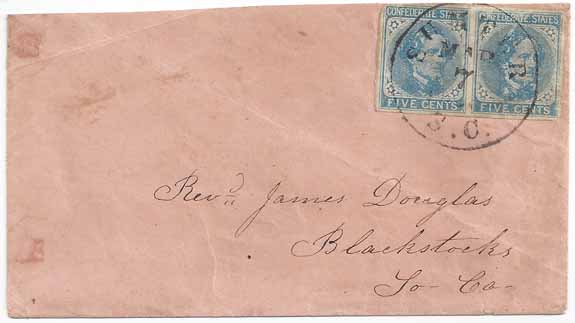 CONFEDERATE STATES CONFEDERATE STATES
SUMTER
MAR
7
S.C.
FIVE CENTS FIVE CENTS
Revd James Douglas
Blackstocks
So- Ca-